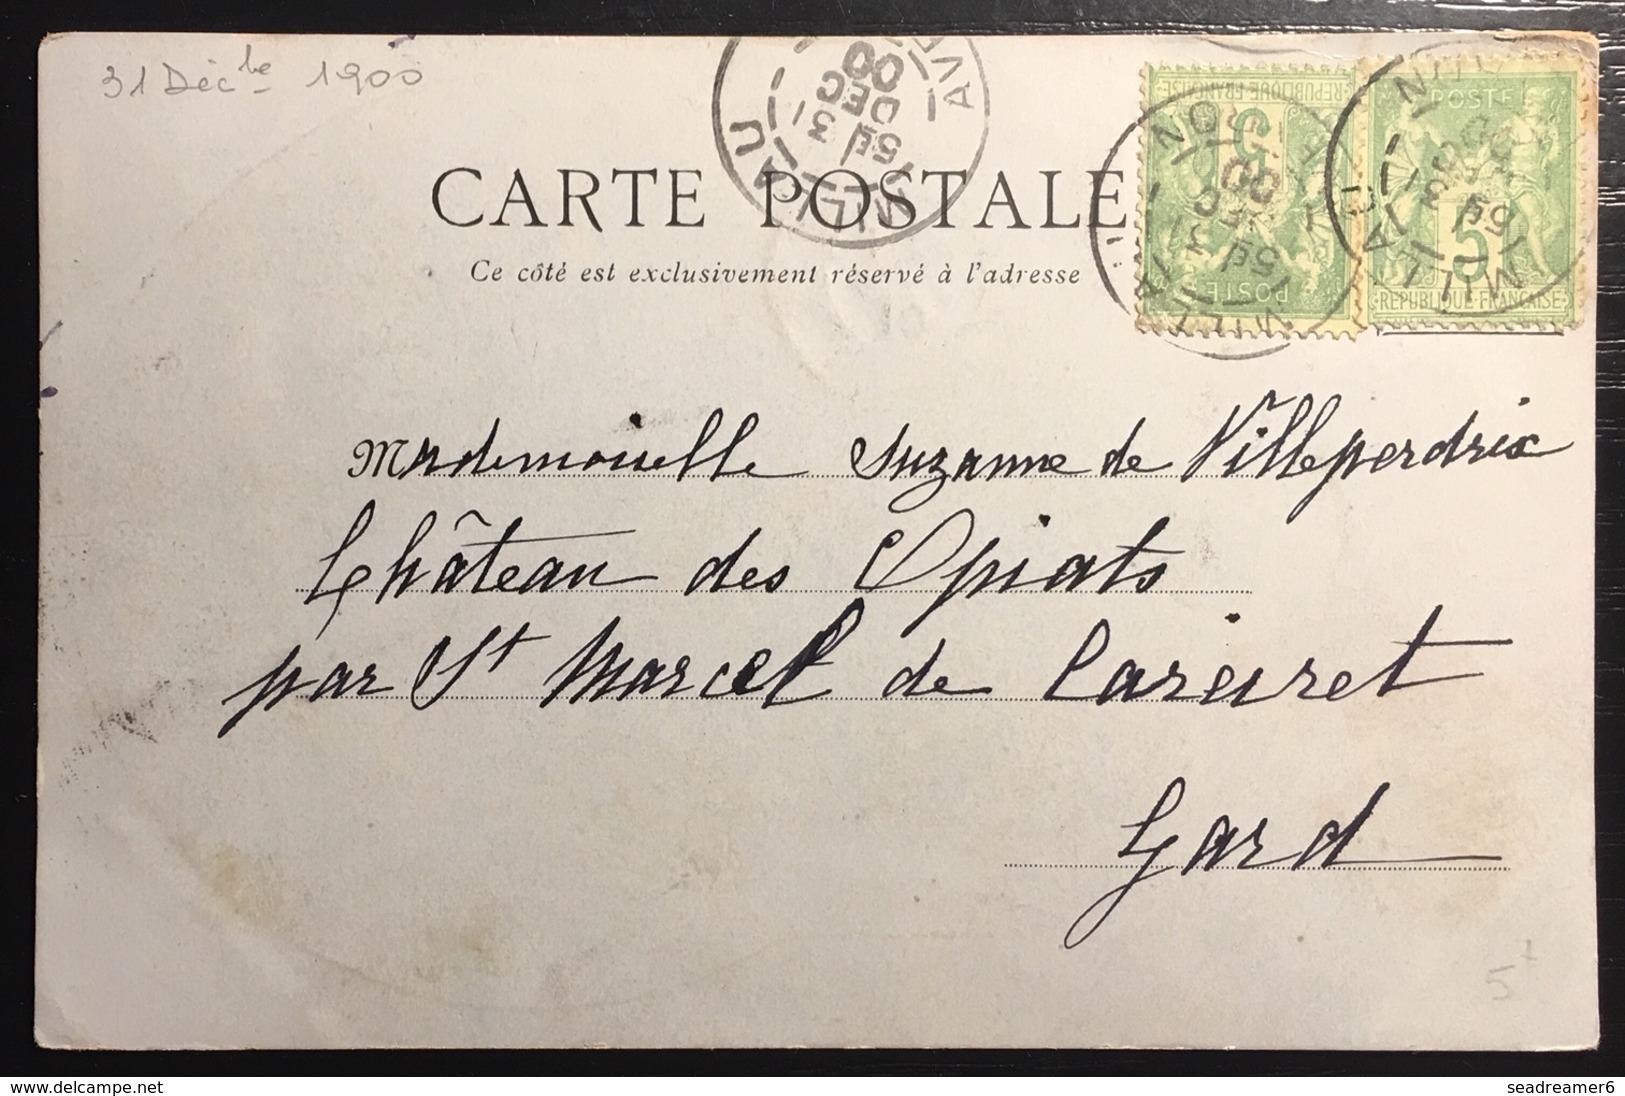 31 Déc.bre 1900
MILLAU AVEYRON
5E 31 DEC 00
CARTE POSTALE
Ce côté est exclusivement réservé à l'adresse
REPUBLIQUE FRANÇAISE
5
POSTE
POSTE
5
REPUBLIQUE FRANÇAISE
Mademoiselle Suzanne de Villeperdrix
Château des Opiats
par St Marcel de Careiret
Gard
5
delcampe.net
seadreamer6